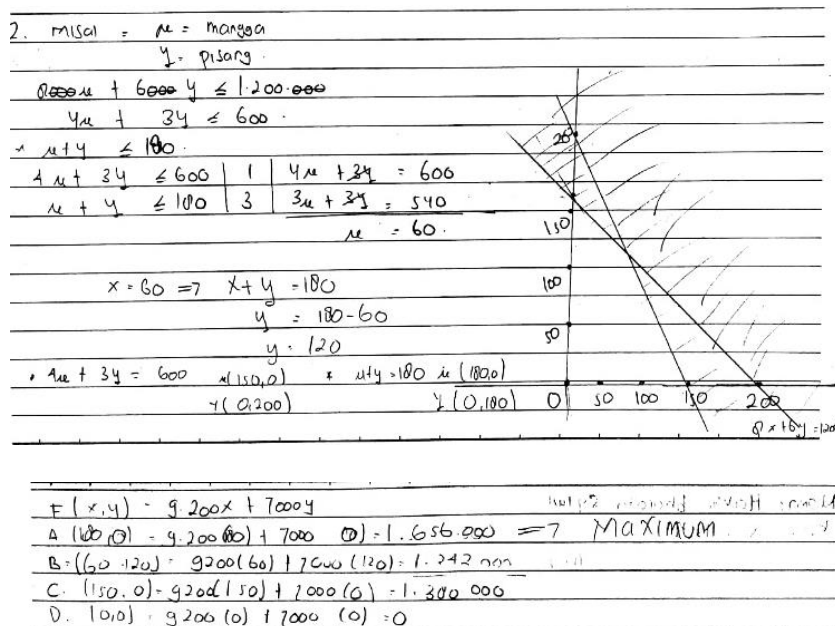 2. Misal = x = mangga
y = pisang
8000x + 6000y ≤ 1.200.000
4x + 3y ≤ 600
x+y ≤ 180.
4x + 3y ≤ 600 | 1 | 4x + 3y = 600
x + y ≤ 180 | 3 | 3x + 3y = 540
x = 60.
x = 60 => x+y = 180
y = 180-60
y = 120
• 4x + 3y = 600 x(150,0) * x+y=180 x (180,0)
y(0,200) y (0,180)
200
150
100
50
0 50 100 150 200
8x+6y=120
F(x,y) = 9.200x + 7000y
A (180,0) = 9.200(180) + 7000 (0) = 1.656.000 => MAXIMUM
B = (60.120) = 9200(60) + 7000 (120) = 1.242
C. (150.0) = 9200(150) + 7000 (0) = 1.380 000
D. (0,0) = 9200 (0) + 7000 (0) = 0